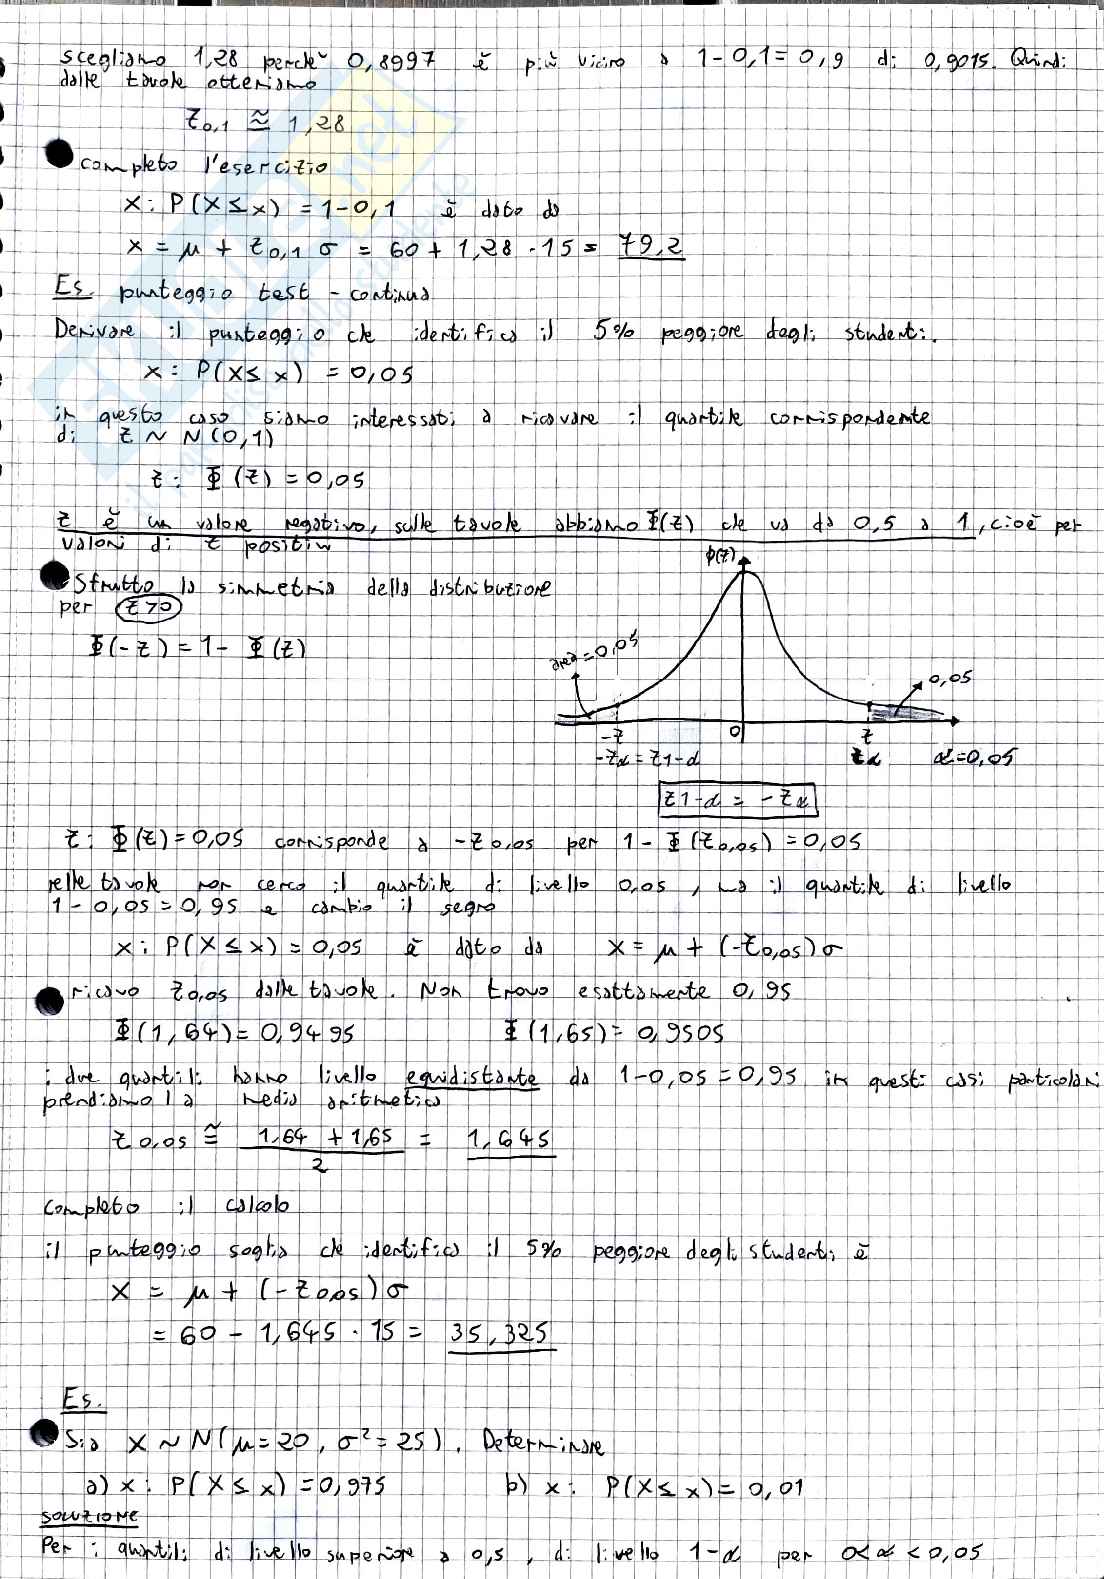 scegliamo 1,28 perchè 0,8997 è più vicino a 1-0,1=0,9 di 0,9015. Quindi
dalle tavole otteniamo
z0,1 ≅ 1,28
completo l'esercizio
x: P(X≤x) = 1-0,1 è dato da
x = μ + z0,1 σ = 60 + 1,28 · 15 = 79,2
Es. punteggio test - continua
Derivare il punteggio che identifica il 5% peggiore degli studenti.
x: P(X≤x) = 0,05
in questo caso siamo interessati a ricavare il quantile corrispondente
di z ~ N(0,1)
z: Φ(z) = 0,05
z è un valore negativo, sulle tavole abbiamo Φ(z) che va da 0,5 a 1, cioè per
valori di z positivi
Sfrutto la simmetria della distribuzione
per z>0
Φ(-z) = 1 - Φ(z)
ϕ(z)
area=0,05
0,05
-z 0 z
-zα = z1-α zα α=0,05
z1-α = -zα
z: Φ(z)=0,05 corrisponde a -z0,05 per 1 - Φ(z0,05) = 0,05
nelle tavole non cerco il quantile di livello 0,05, ma il quantile di livello
1-0,05=0,95 e cambio il segno
x: P(X≤x) = 0,05 è dato da x = μ + (-z0,05)σ
ricavo z0,05 dalle tavole. Non trovo esattamente 0,95
Φ(1,64)= 0,9495 Φ(1,65)= 0,9505
i due quantili hanno livello equidistante da 1-0,05=0,95 in questi casi particolari
prendiamo la media aritmetica
z0,05 ≅ 1,64 + 1,65 / 2 = 1,645
Completo il calcolo
il punteggio soglia che identifica il 5% peggiore degli studenti è
x = μ + (-z0,05)σ
= 60 - 1,645 · 15 = 35,325
Es.
Sia X ~ N(μ=20, σ²=25). Determinare
a) x: P(X≤x)=0,975 b) x: P(X≤x)= 0,01
soluzione
Per i quantili di livello superiore a 0,5, di livello 1-α per 0<α<0,05